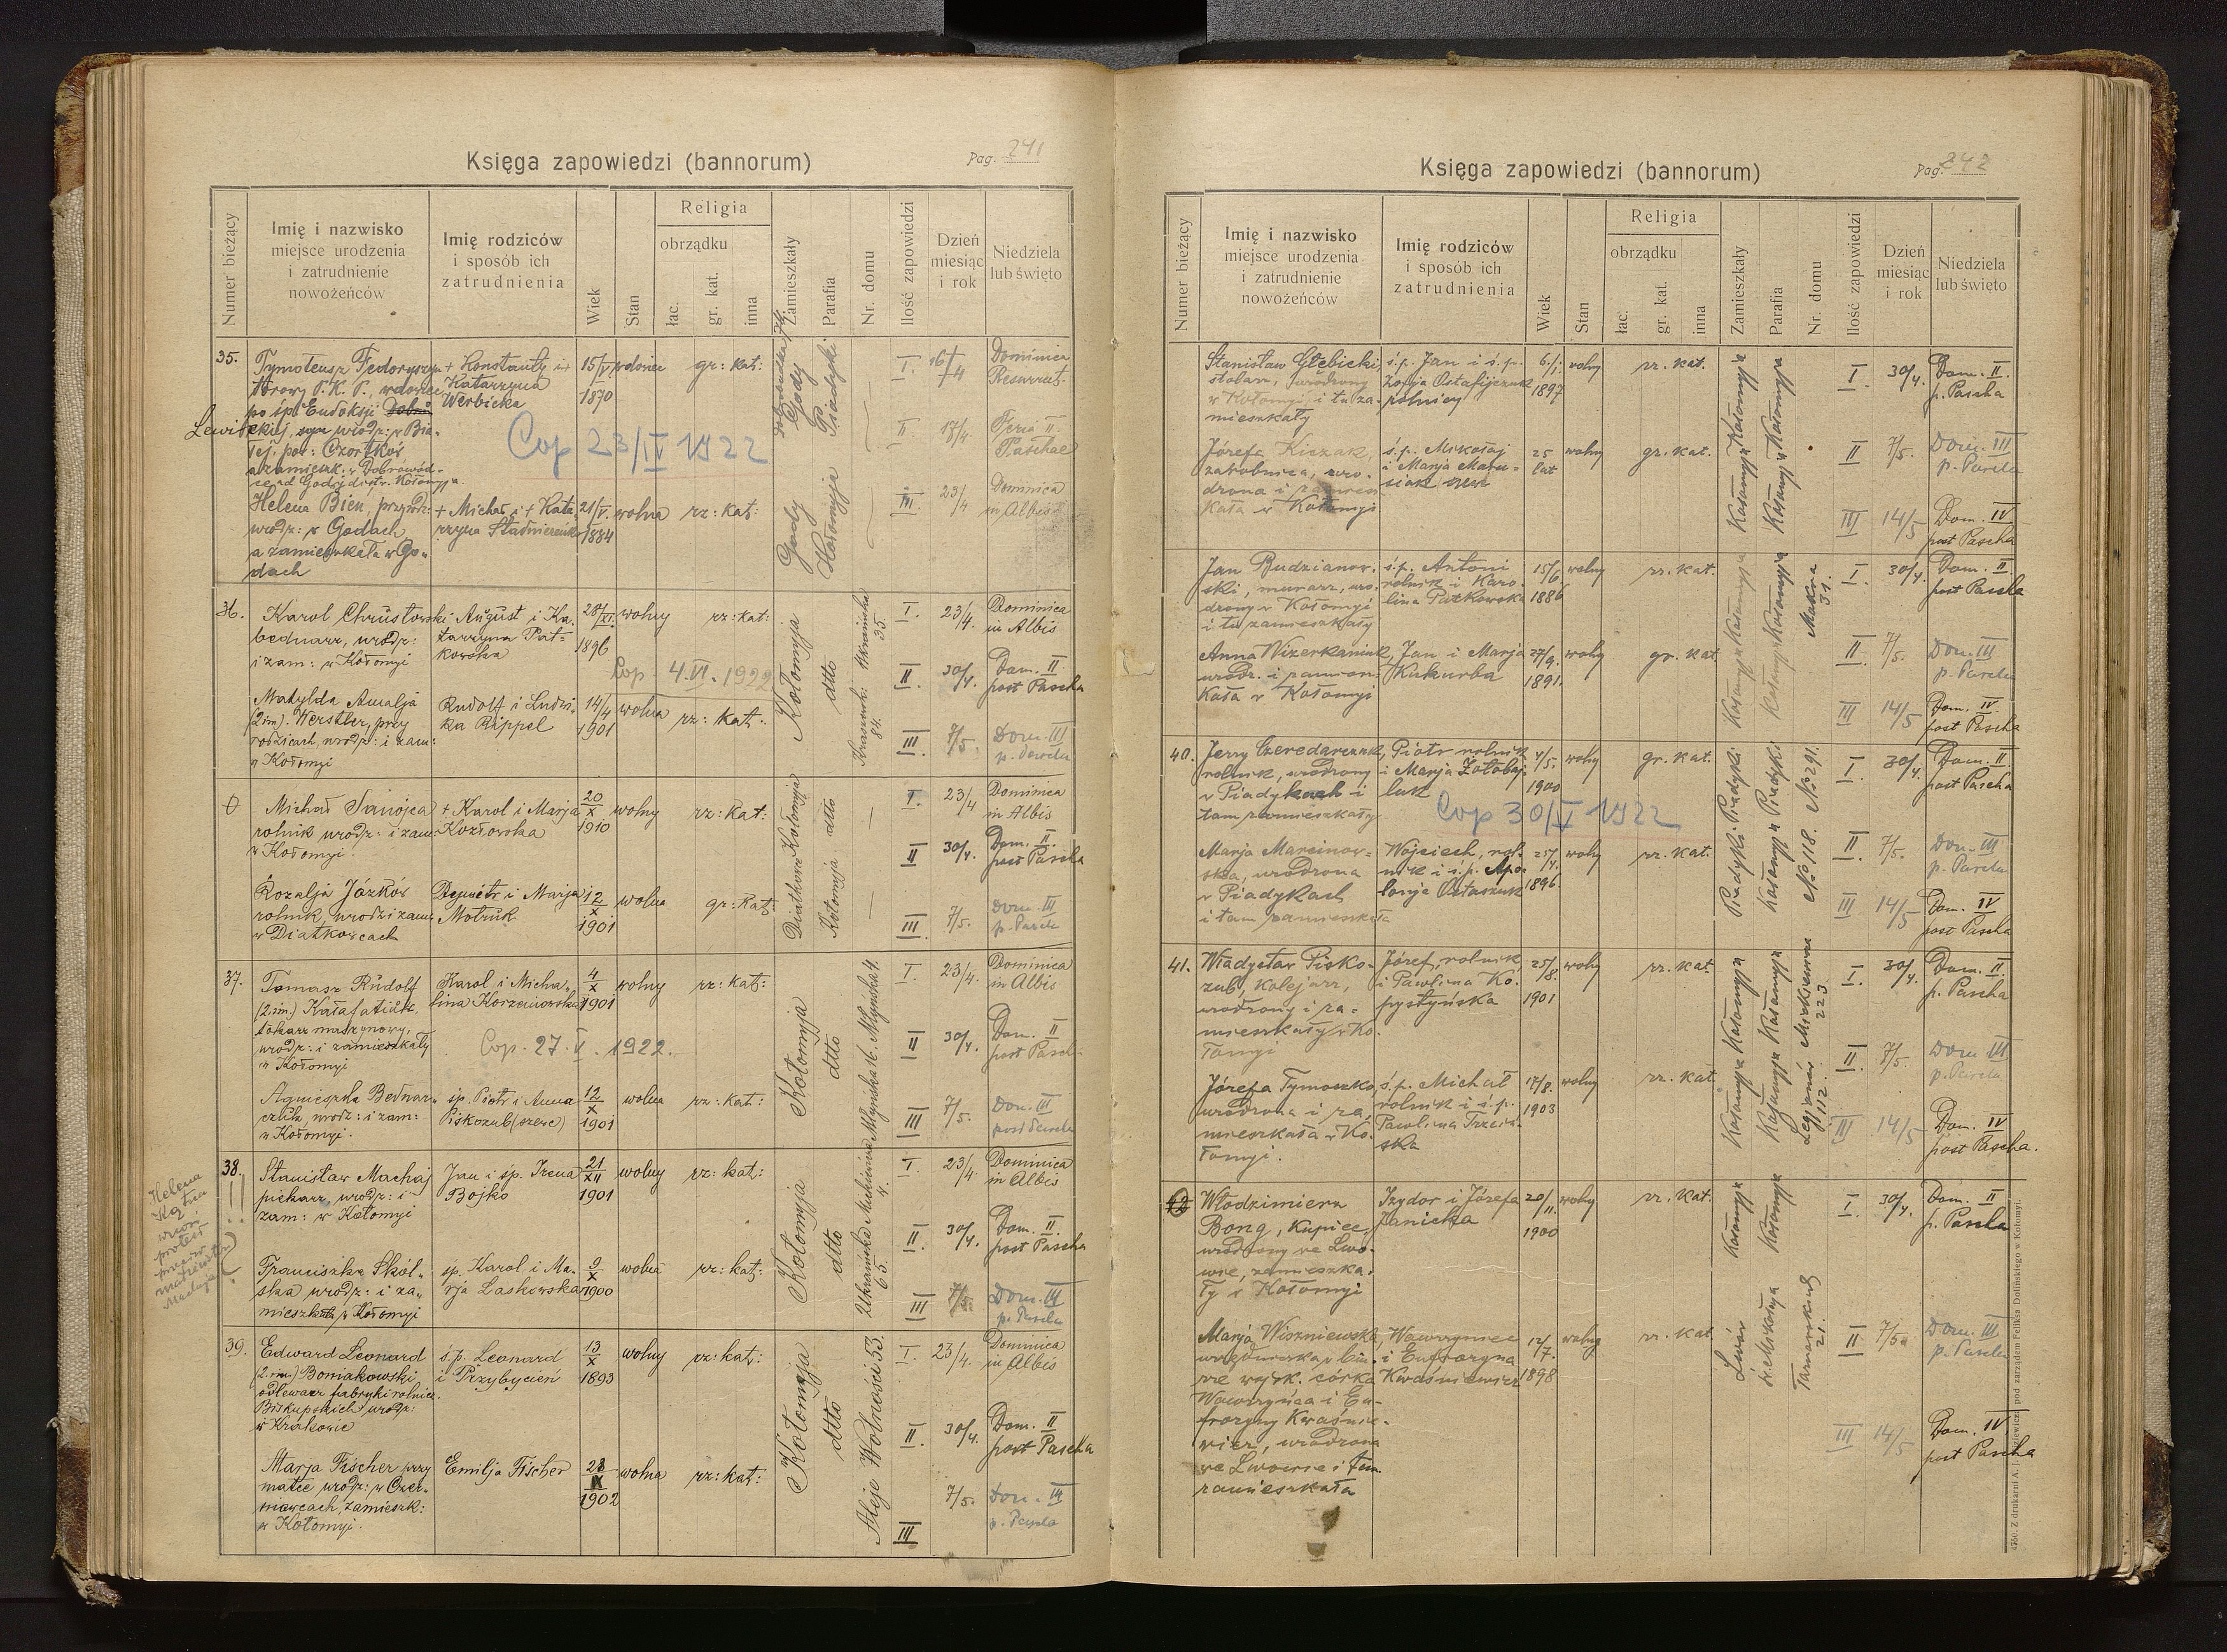 Księga zapowiedzi (bannorum)
Pag. 241
Numer bieżący
Imię i nazwisko
miejsce urodzenia
i zatrudnienie
nowożeńców
Imię rodziców
i sposób ich
zatrudnienia
Wiek
Stan
Religia
obrządku
łac.
gr. kat.
inna
Zamieszkały
Parafia
Nr. domu
Ilość zapowiedzi
Dzień
miesiąc
i rok
Niedziela
lub święto
35.
Tymoteusz Fedoryszyn
P. K. P., wdowiec
po śp. Eudoksji
Lewickiej, urodz: w Bia-
łej. pow: Czortków,
a zamieszk. w Dobrowód-
ce ad Gody distr. Kołomyja.
+ Konstanty i +
Katarzyna
Werbicka
15/V
1870
wdowiec
gr: kat:
Gody
Piadyki
I. 16/4 Dominica
Resurrect.
II 17/4. Feria II.
Paschae
III. 23/4 Dominica
in Albis
Cop 23/IV 1922
Helena Bien, przy rodz:
urodz: w Godach
a zamieszkała w Go-
dach
+ Michał i + Kata
rzyna
21/V.
1884
wolna
rz: kat:
Gody
Kołomyja
36.
Karol Chrustowski
bednarz, urodz:
i zam: w Kołomyi
August i Ka-
tarzyna Pat-
kowska
28/XI.
1896
wolny
rz: kat:
Kołomyja
dtto
Ukraińska
35.
I. 23/4. Dominica
in Albis
II 30/4. Dom. II
post Pascha
III 7/5. Dom. III
p. Pascha
Cop. 4.VI. 1922
Matylda Amalja
(2 im). Werstler, przy
rodzicach, urodz: i zam:
w Kołomyi
Rudolf i Ludwi-
ka Rippel
14/4
1901
wolna
rz: kat:
Kraszewski:
84.
0
Michał Sanojca
rolnik urodz: i zam:
w Kołomyi.
+ Karol i Marja
Kozłowska
20
X
1910
wolny
rz: kat:
Kołomyja
dtto
I. 23/4 Dominica
in Albis
II 30/4. Dom. II.
post Pascha
III. 7/5. Dom. III
p. Pascha
Rozalja Józków
rolnik, urodz i zam:
w Diatkowcach
Dymitr i Marja
Motruk
12
X
1901
wolna
gr: kat:
Diatkowce
Kołomyja
37.
Tomasz Rudolf
(2 im.) Kałafatiuk,
tokarz maszynowy,
urodz: i zamieszkały
w Kołomyi
Karol i Micha-
lina Korzeniowska
4
X
1901
wolny
rz: kat:
Kołomyja
dtto
Młyńska 4.
I. 23/4. Dominica
in Albis
II 30/4. Dom. II
post Pasch.
III 7/5. Dom. III
post Pascha
Cop. 27.V. 1922.
Agnieszka Bednar-
czuk, urodz: i zam:
w Kołomyi.
śp. Piotr i Anna
Piskozub (szewc)
12
X
1901
wolna
rz: kat:
Młyńska 16.
38.
Stanisław Machaj
piekarz, urodz: i
zam: w Kołomyi
Jan i śp. Irena
Bojko
21
XII
1901
wolny
rz: kat:
Kołomyja
dtto
Mickiewicza
4.
I. 23/4. Dominica
in Albis
II. 30/4. Dom. II.
post Pascha
III 7/5. Dom. III
p. Pascha
Helena
Franciszka Skól-
ska urodz: i za-
mieszkała w Kołomyi
śp. Karol i Ma-
rja Laskowska
9
X
1900
wolna
rz: kat:
Ukraińska
65.
39.
Edward Leonard
(2. im.) Bomakowski
odlewacz fabryki rolnicz.
Biskupskich urodz:
w Krakowie
ś.p. Leonard
i Przybycień
13
X
1893
wolny
rz: kat:
Kołomyja
dtto
Aleje Wolności 53.
I. 23/4. Dominica
in Albis
II. 30/4. Dom. II
post Pascha
III 7/5. Dom. III
p. Pascha
Marja Fischer przy
matce urodz: w Czer-
niowcach, zamieszk:
w Kołomyi.
Emilja Fischer
28
X
1902
wolna
rz: kat:
Księga zapowiedzi (bannorum)
Pag. 242
Numer bieżący
Imię i nazwisko
miejsce urodzenia
i zatrudnienie
nowożeńców
Imię rodziców
i sposób ich
zatrudnienia
Wiek
Stan
Religia
obrządku
łac.
gr. kat.
inna
Zamieszkały
Parafia
Nr. domu
Ilość zapowiedzi
Dzień
miesiąc
i rok
Niedziela
lub święto
Stanisław Głębicki,
stolarz, urodzony
w Kołomyi i tu za-
mieszkały
ś.p. Jan i ś.p.
Zofja Ostafijczuk
rolnicy
6/1.
1897
wolny
rz. kat.
Kołomyja
Kołomyja
I. 30/4. Dom. II.
p. Pascha
II 7/5. Dom. III
p. Pascha
III 14/5 Dom. IV
post Pascha
Józefa Kiczak,
zarobnica, uro-
dzona i zamiesz
kała w Kołomyi
ś.p. Mikołaj
i Marja Matu-
siak
25
lat
wolny
gr. kat.
Kołomyja
Kołomyja
Jan Budzianow-
ski, murarz, uro-
dzony w Kołomyi
i tu zamieszkały
ś.p. Antoni
rolnik i Karo-
lina Patkowska
15/6.
1886
wolny
rz. kat.
Kołomyja
Kołomyja
Mokra
31.
I. 30/4. Dom. II.
post Pascha
II. 7/5. Dom. III
p. Pascha
III 14/5 Dom. IV
post Pascha
Anna Wizerkaniuk,
urodz. i zamiesz-
kała w Kołomyi
Jan i Marja
Kukurba
27/9.
1891.
wolny
gr. kat
Kołomyja
Kołomyja
40.
Jerzy Czeredarczuk,
rolnik, urodzony
w Piadykach i
tam zamieszkały
Piotr rolnik
i Marja Zołobaj-
luk
4/5.
1900
wolny
gr. kat.
Piadyki
Piadyki
No 291.
I. 30/4. Dom. II.
post Pascha
II. 7/5. Dom. III
p. Pascha
III 14/5 Dom. IV
post Pascha
Cop 30/V 1922
Marja Marcinow-
ska, urodzona
w Piadykach
i tam zamieszkała
Wojciech, rol-
nik i ś.p. Apo-
lonja Ostaszuk
25/4.
1896
wolny
rz. kat.
Piadyki
Kołomyja
No 118.
41.
Władysław Pisko-
zub, kolejarz,
urodzony i za-
mieszkały w Ko-
łomyi
Józef, rolnik
i Pawlina Ko-
pystyńska
25/8.
1901
wolny
rz. kat.
Kołomyja
Kołomyja
Mickiewicza
223.
I. 30/4. Dom. II.
p. Pascha
II. 7/5. Dom III
p. Pascha
III 14/5 Dom. IV
post Pascha.
Józefa Tymoszko,
urodzona i za-
mieszkała w Ko-
łomyi.
ś.p. Michał
rolnik i ś.p.
Pawlina Trzciń-
ska
17/8.
1903
wolny
rz. kat.
Kołomyja
Kołomyja
Legjonów
112.
42
Włodzimierz
Bong, kupiec,
urodzony we Lwo-
wie, zamieszka-
ły w Kołomyi
Izydor i Józefa
Janicka
20/11.
1900
wolny
rz. kat.
Kołomyja
Kołomyja
I. 30/4. Dom. II
p. Pascha
II. 7/5 Dom. III
p. Pascha
III 14/5 Dom. IV
post Pascha
Marja Wiszniewska,
córka
Wawrzyńca i Eu-
frozyny Kwaśnie-
wicz, urodzona
we Lwowie i tam
zamieszkała
Wawrzyniec
i Eufrozyna
Kwaśniewicz
12/7.
1898
wolny
rz. kat.
Lwów
św. Mikołaja
21.